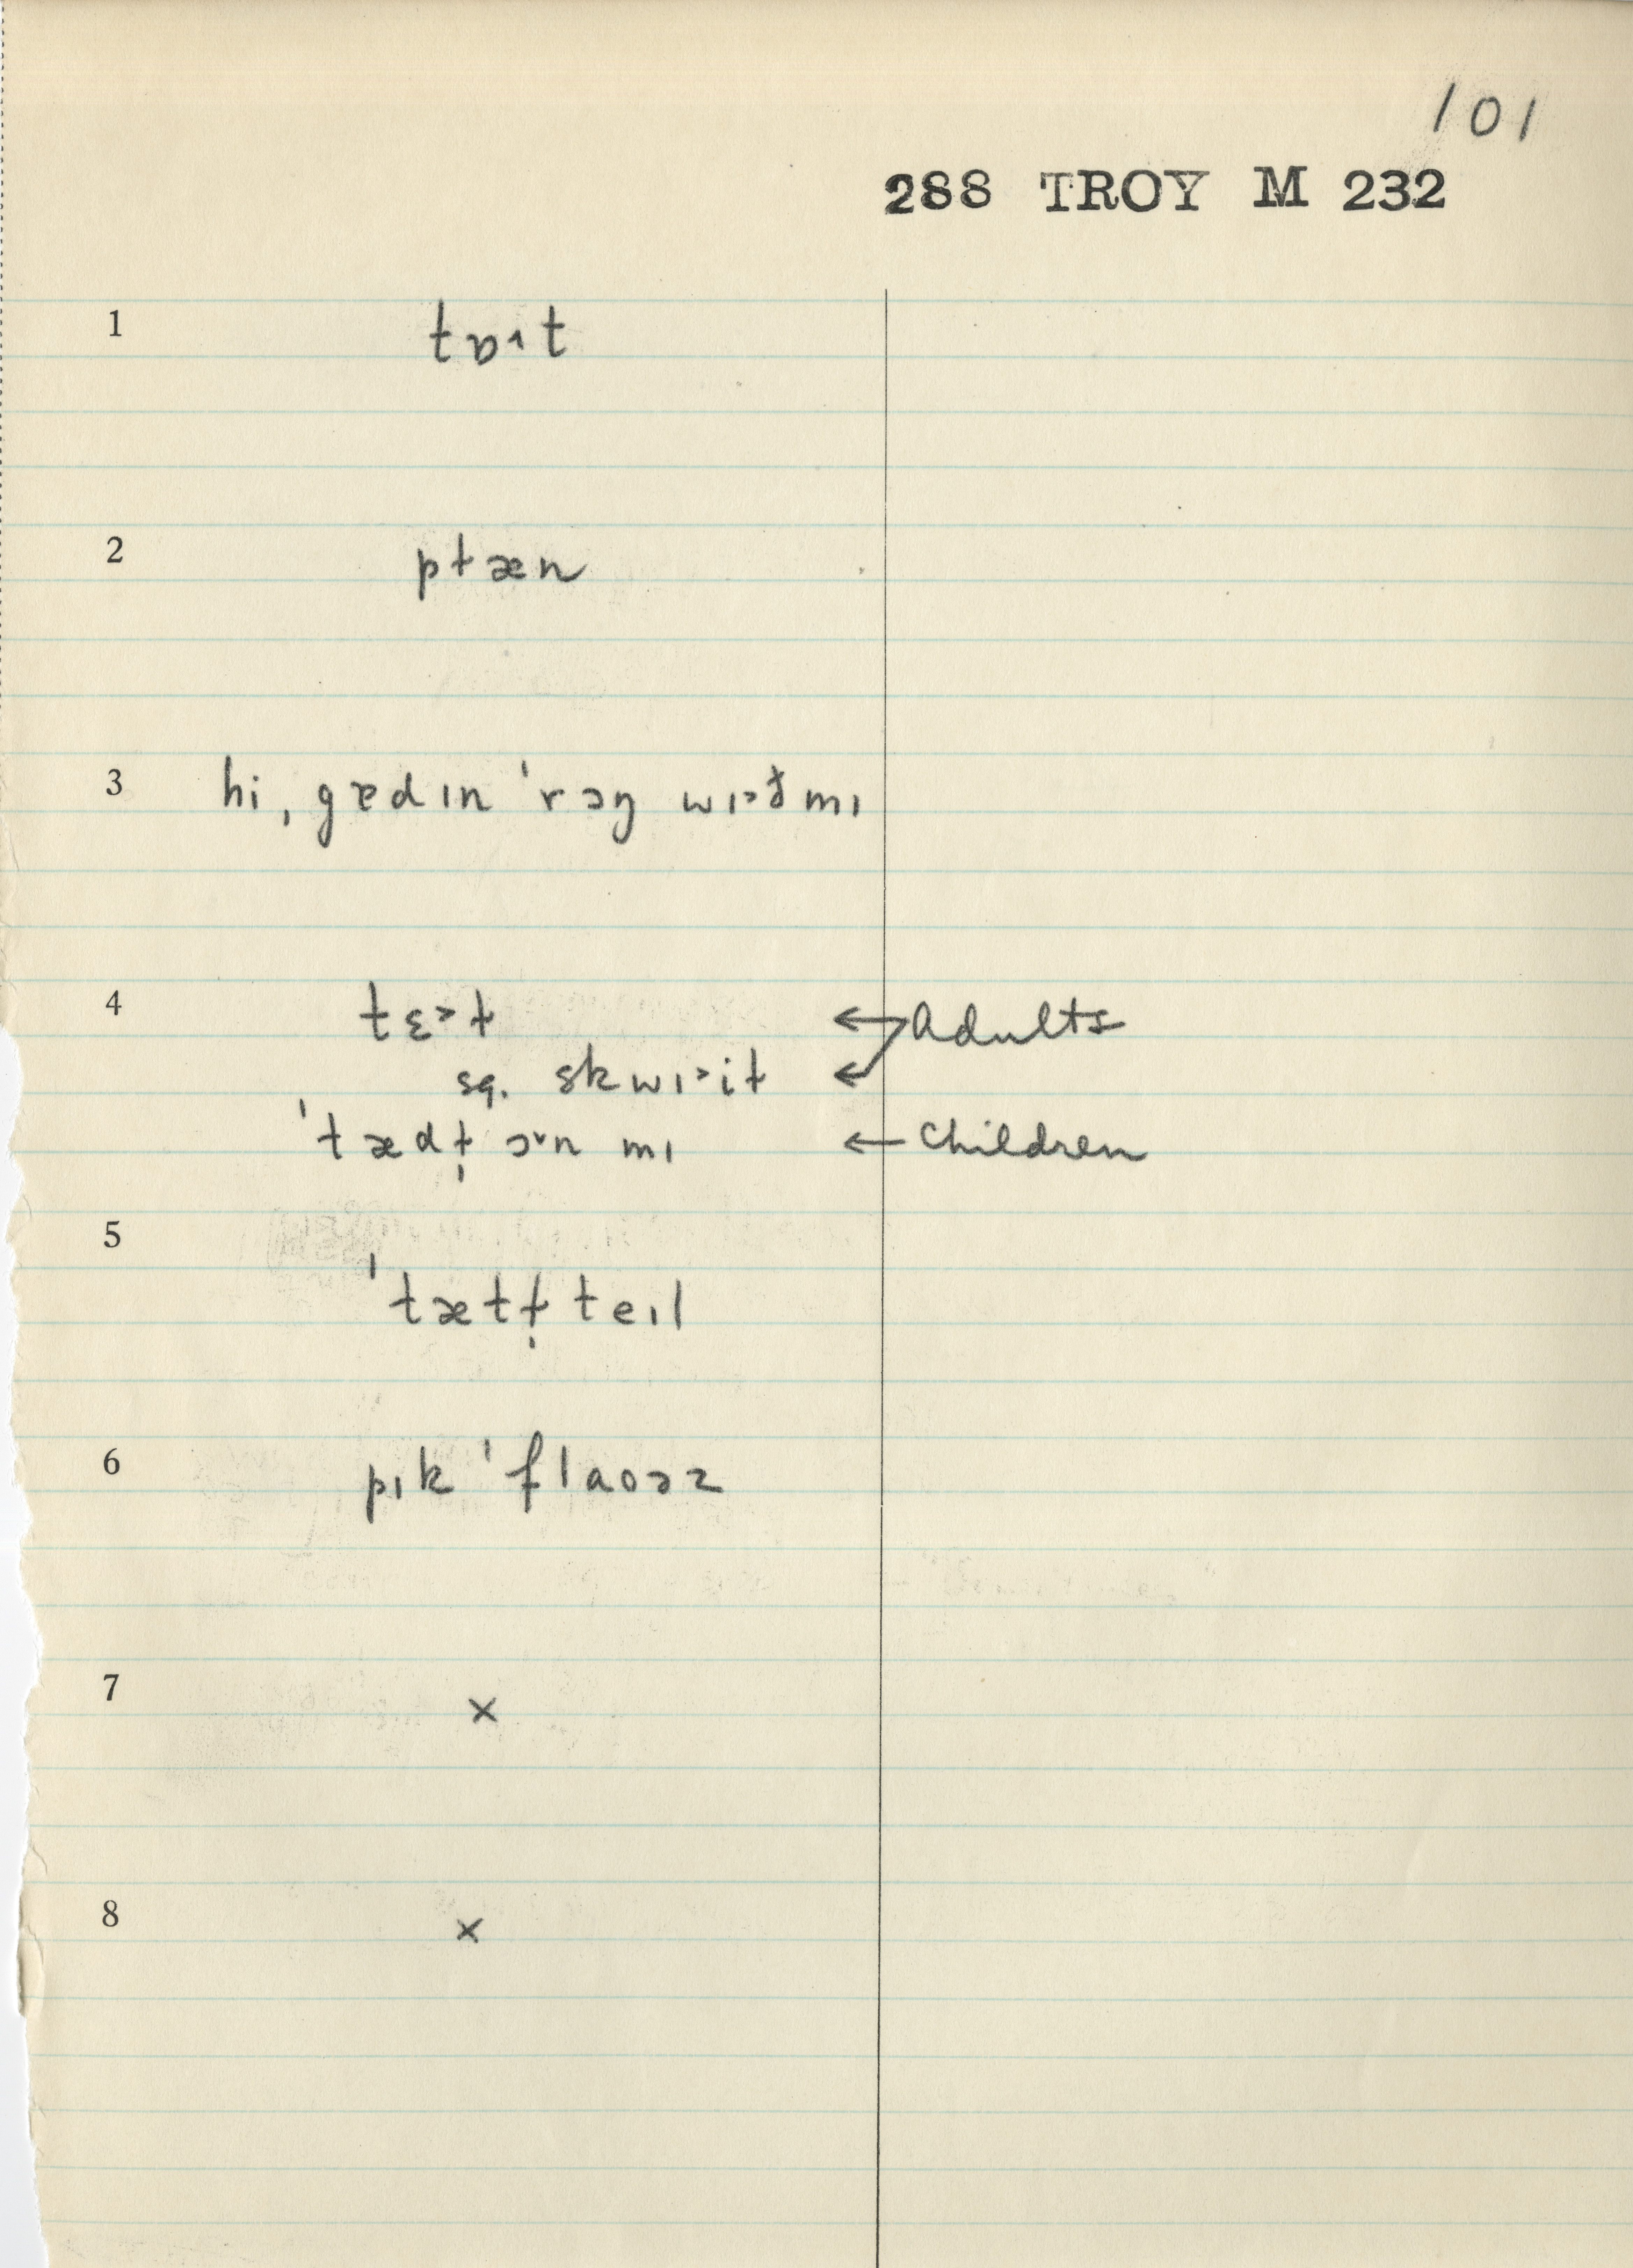 101
288 TROY M 232
1 tɒ˄t
2 ptæn
3 hi, gɐdɪn ˈrɔŋ wɪ˃ð mɪ
4 tɛ˃t ← Adults
sq. skwɪ˃it ←
ˈtædt̩ ɔ˅n mɪ ← Children
5
ˈtætt̩ teɪl
6 pɪk ˈflaoəz
7 ×
8 ×